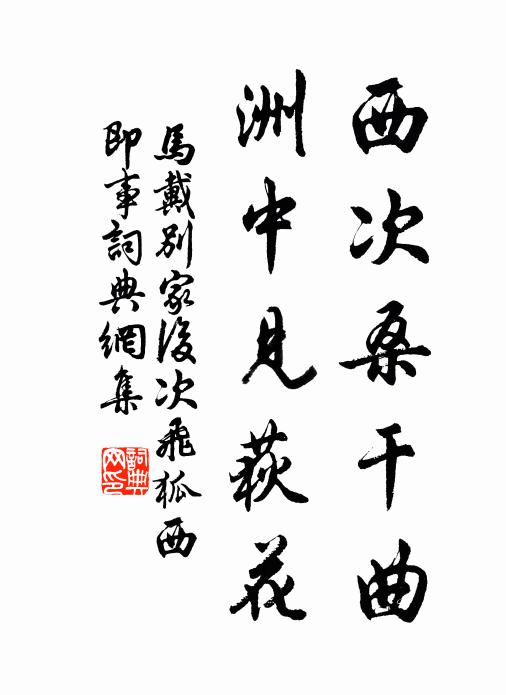 西次桑干曲
洲中見荻花
馬戴別家後次飛狐西
即事詞典網集
詞典
网印